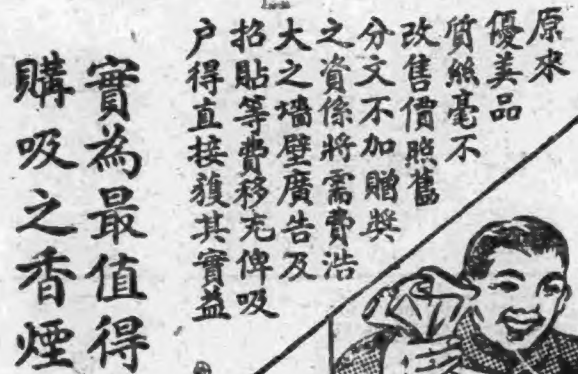 原來
優美品
質絲毫不
改售價照舊
分文不加贈獎
之資係將需費浩
大之墻壁廣告及
招貼等費移充俾吸
户得直接獲其實益
實為最值得
購吸之香煙